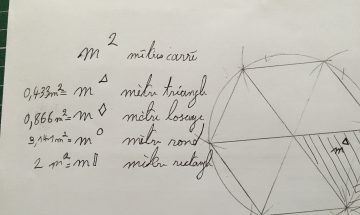 m² mètres carré
0,433m²= m△ mètre triangle
0,866m²= m◊ mètre losange
3,141m²= m○ mètre rond
2 m²= m▯ mètre rectangle
m△